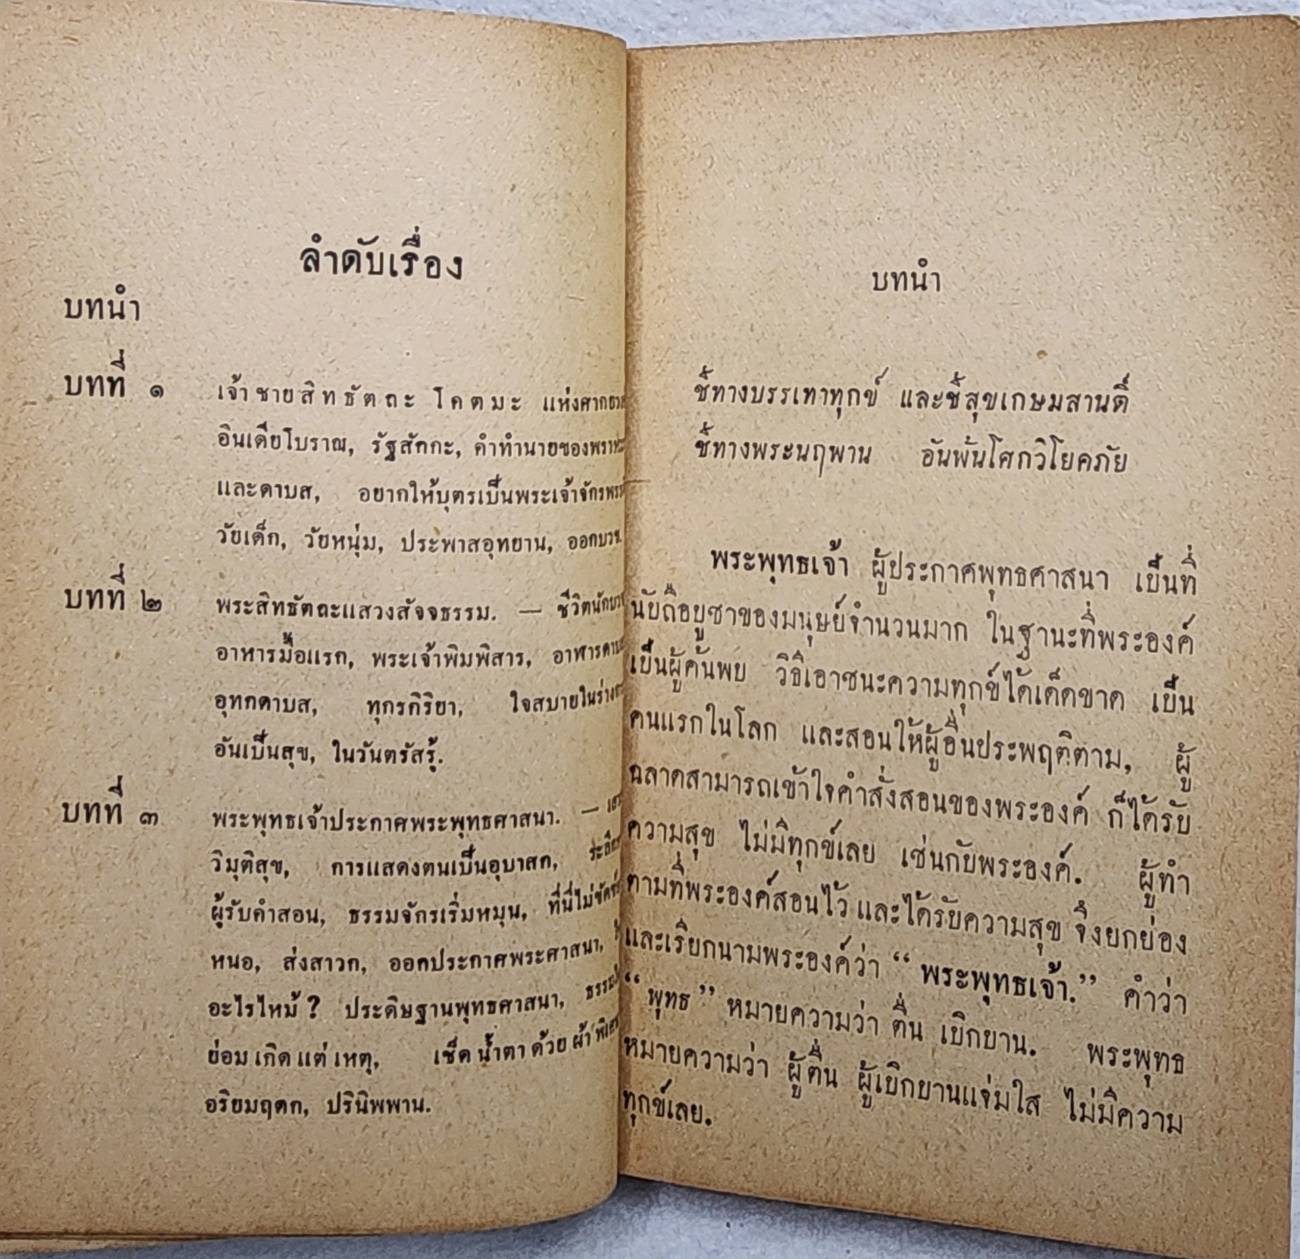 ลำดับเรื่อง
บทนำ
บทที่ ๑ เจ้าชายสิทธัตถะ โคตมะ แห่งศากยวงศ์
อินเดียโบราณ, รัฐสักกะ, คำทำนายของพราหมณ์
และดาบส, อยากให้บุตรเป็นพระเจ้าจักรพรรดิ
วัยเด็ก, วัยหนุ่ม, ประพาสอุทยาน, ออกบวช.
บทที่ ๒ พระสิทธัตถะแสวงสัจจธรรม. — ชีวิตนักบวช
อาหารมื้อแรก, พระเจ้าพิมพิสาร, อาฬารดาบส
อุททกดาบส, ทุกรกิริยา, ใจสบายในร่างกาย
อันเป็นสุข, ในวันตรัสรู้.
บทที่ ๓ พระพุทธเจ้าประกาศพระพุทธศาสนา. —
วิมุติสุข, การแสดงตนเป็นอุบาสก,
ผู้รับคำสอน, ธรรมจักรเริ่มหมุน, ที่นี่ไม่ขัดข้อง
หนอ, ส่งสาวก, ออกประกาศพระศาสนา,
อะไรไหม้ ? ประดิษฐานพุทธศาสนา,
ย่อมเกิดแต่เหตุ, เช็ดน้ำตาด้วยผ้า
อริยมฤดก, ปรินิพพาน.
บทนำ
ชี้ทางบรรเทาทุกข์ และชี้สุขเกษมสานติ์
ชี้ทางพระนฤพาน อันพ้นโศกวิโยคภัย
พระพุทธเจ้า ผู้ประกาศพุทธศาสนา เป็นที่
นับถือบูชาของมนุษย์จำนวนมาก ในฐานะที่พระองค์
เป็นผู้ค้นพบ วิธีเอาชนะความทุกข์ได้เด็ดขาด เป็น
คนแรกในโลก และสอนให้ผู้อื่นประพฤติตาม, ผู้
ฉลาดสามารถเข้าใจคำสั่งสอนของพระองค์ ก็ได้รับ
ความสุข ไม่มีทุกข์เลย เช่นกับพระองค์. ผู้ทำ
ตามที่พระองค์สอนไว้ และได้รับความสุข จึงยกย่อง
และเรียกนามพระองค์ว่า “ พระพุทธเจ้า.” คำว่า
“ พุทธ ” หมายความว่า ตื่น เบิกบาน. พระพุทธ
หมายความว่า ผู้ตื่น ผู้เบิกบานแจ่มใส ไม่มีความ
ทุกข์เลย.